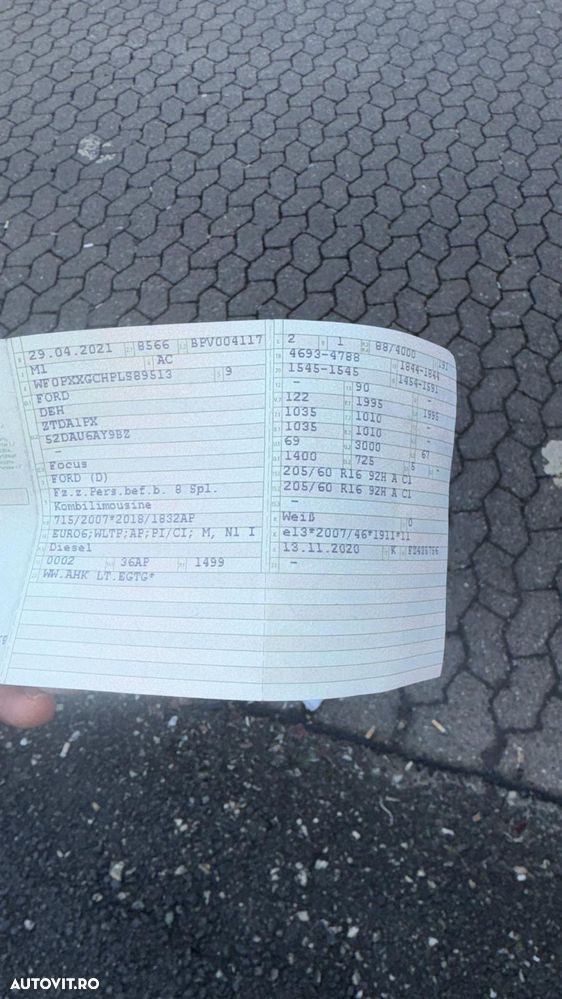 29.04.2021 8566 BPV004117
M1 AC
WF0PXXGCHPLS89513 9
FORD
DEH
ZTDA1PX
52DAU6AY9BZ
-
Focus
FORD (D)
Fz.z.Pers.bef.b. 8 Spl.
Kombilimousine
715/2007*2018/1832AP
EURO6;WLTP;AP;PI/CI; M, N1 I
Diesel
0002 36AP 1499
WW.AHK LT.EGTG*
2 1 88/4000 191
4693-4788 1844-1844
1545-1545 1454-1591
- 90 -
122 1995 -
1035 1010 1995
1035 1010 -
69 3000 67
1400 725 5 -
205/60 R16 92H A C1
205/60 R16 92H A C1
-
Weiß 0
e13*2007/46*1911*11
13.11.2020 K
-
AUTOVIT.RO